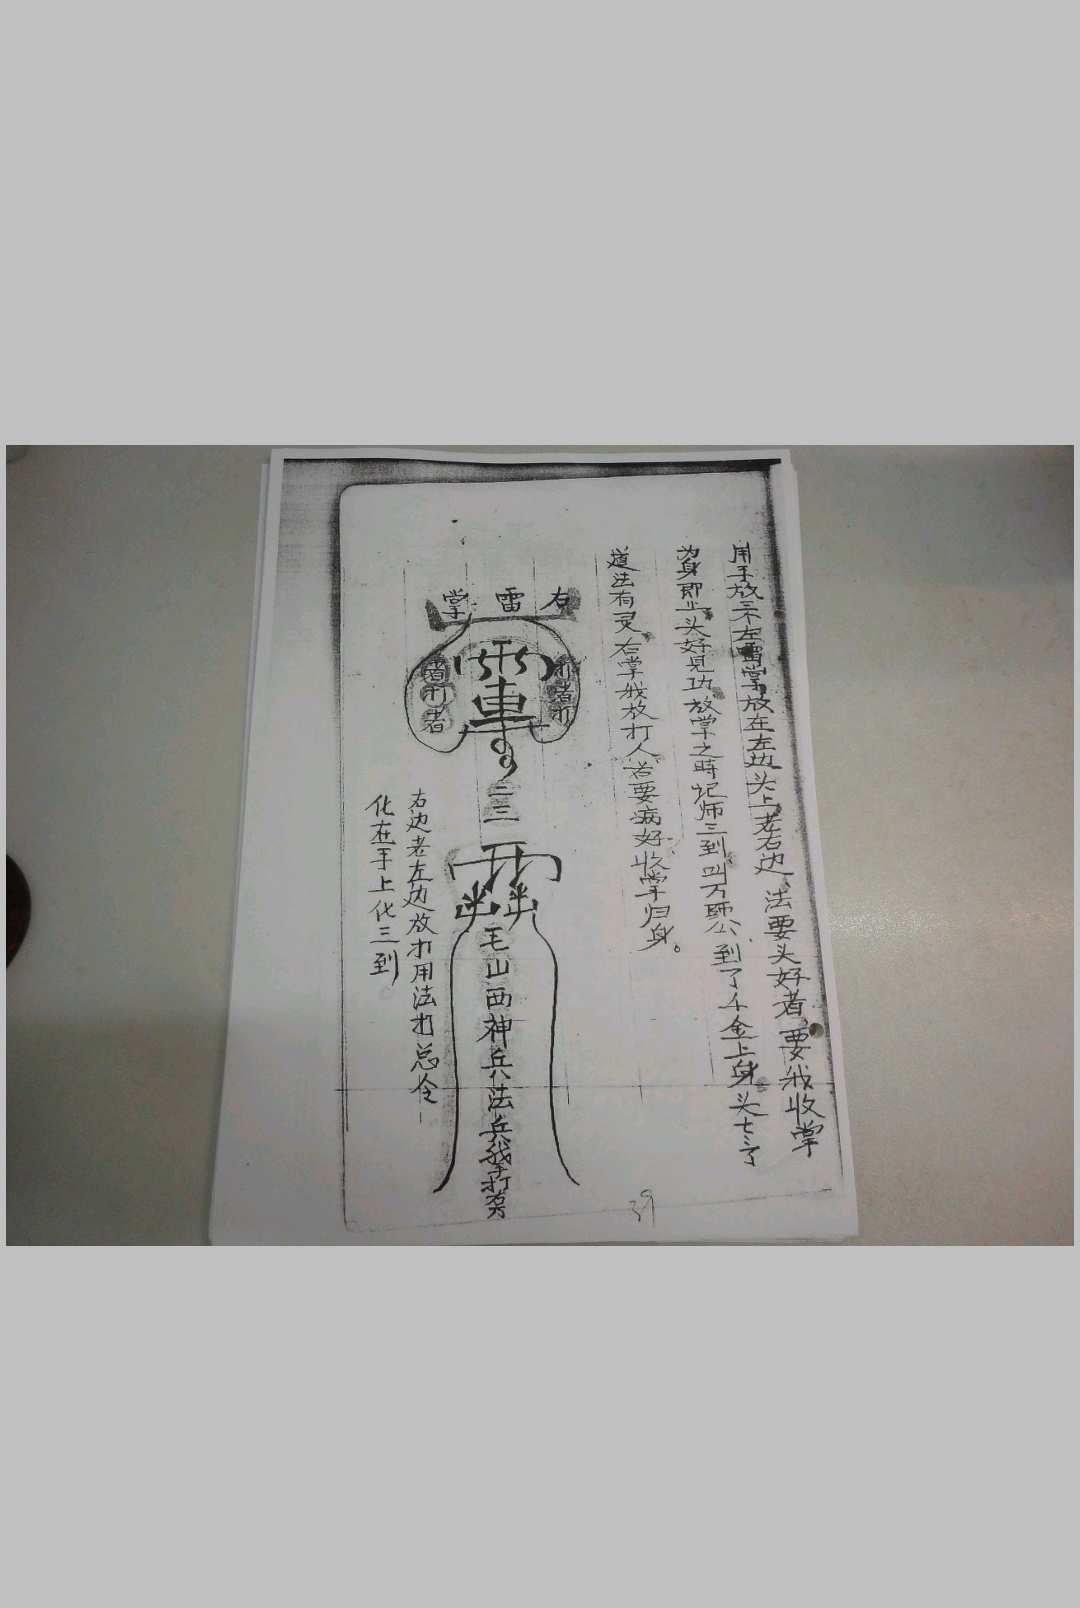 用手放三不左雷掌放在左边头上老右边 法要头好者要我收掌
为身即止头好见功放掌之時记师三到四万師公到了千金上身头七了
道法有灵右掌我放打人若要病好收掌归身。
右雷掌
打者打
者打者
二三
毛山西神兵法兵我手打
右边老左边放打用法打总令
化在手上化三到
39